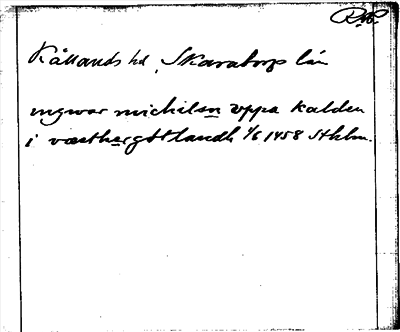 Kållands hd, Skaraborgs län
ingwar michilsn vppa kalden
i væsthærgötlandh 1/6 1458 Sthlm.